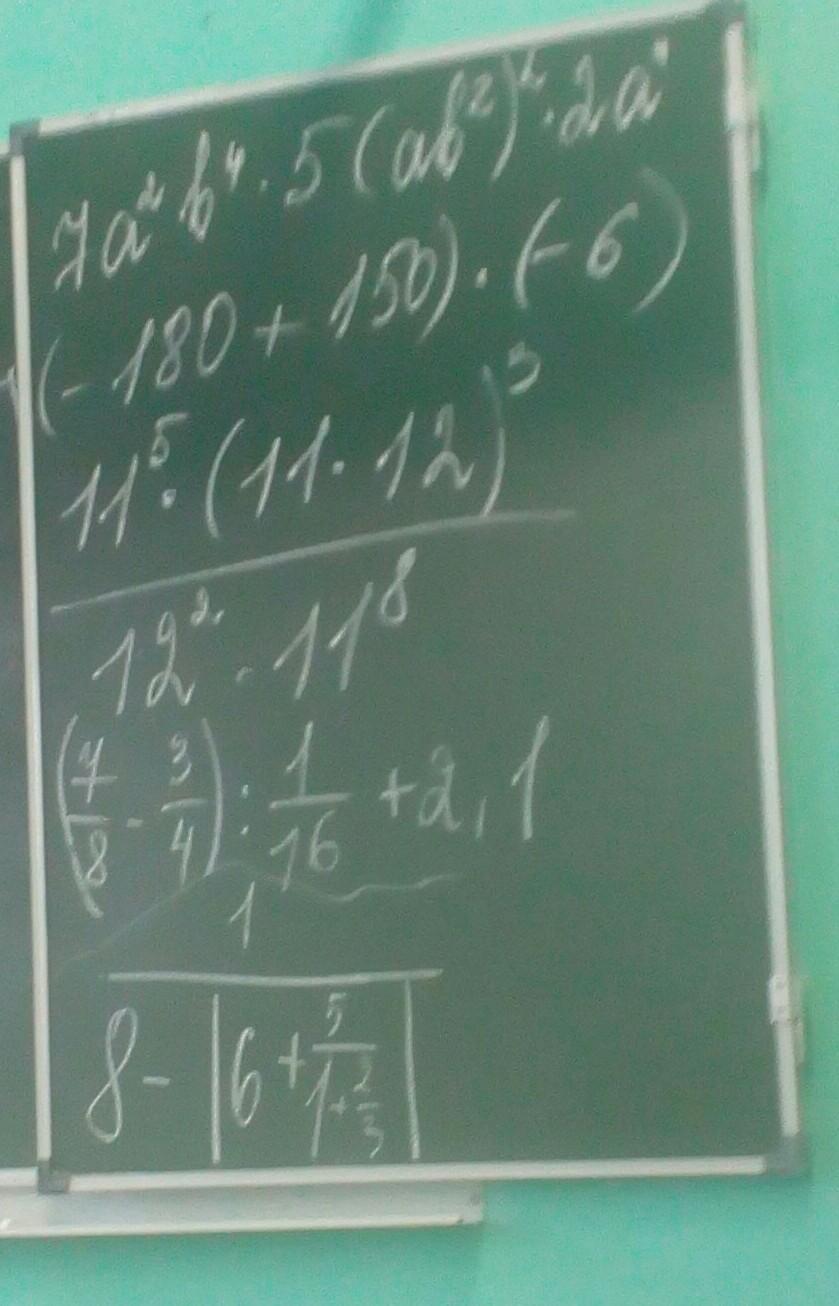 7a² b⁴ · 5 (ab²)² · 2a
(-180 + 150) · (-6)
11⁵ · (11 · 12)³
12² · 11⁸
(7/8 - 3/4) : 1/16 + 2,1
1
8 - |6 + 5/(1 + 2/3)|